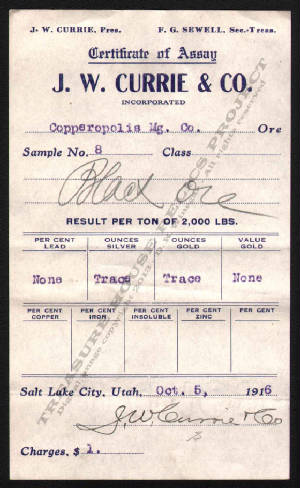 J. W. CURRIE, Pres. F. G. SEWELL, Sec.-Treas.
Certificate of Assay
J. W. CURRIE & CO.
INCORPORATED
Copperopolis Mg. Co. Ore
Sample No. 8 Class
Black ore
RESULT PER TON OF 2,000 LBS.
PER CENT LEAD OUNCES SILVER OUNCES GOLD VALUE GOLD
None Trace Trace None
PER CENT COPPER PER CENT IRON PER CENT INSOLUBLE PER CENT ZINC
Salt Lake City, Utah, Oct. 5, 1916
J. W. Currie & Co
Charges, $ 1.
TREASURE HOUSE RELICS PROJECT